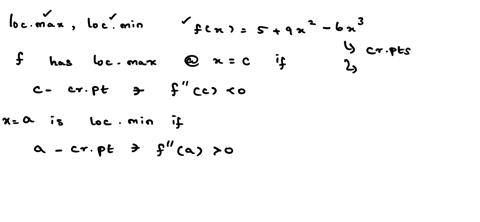 loc.max, loc.min ✓ f(x) = 5 + 9x² - 6x³
↳ cr.pts
f has loc.max @ x = c if
c - cr.pt & f''(c) < 0
x=a is loc.min if
a - cr.pt & f''(a) > 0